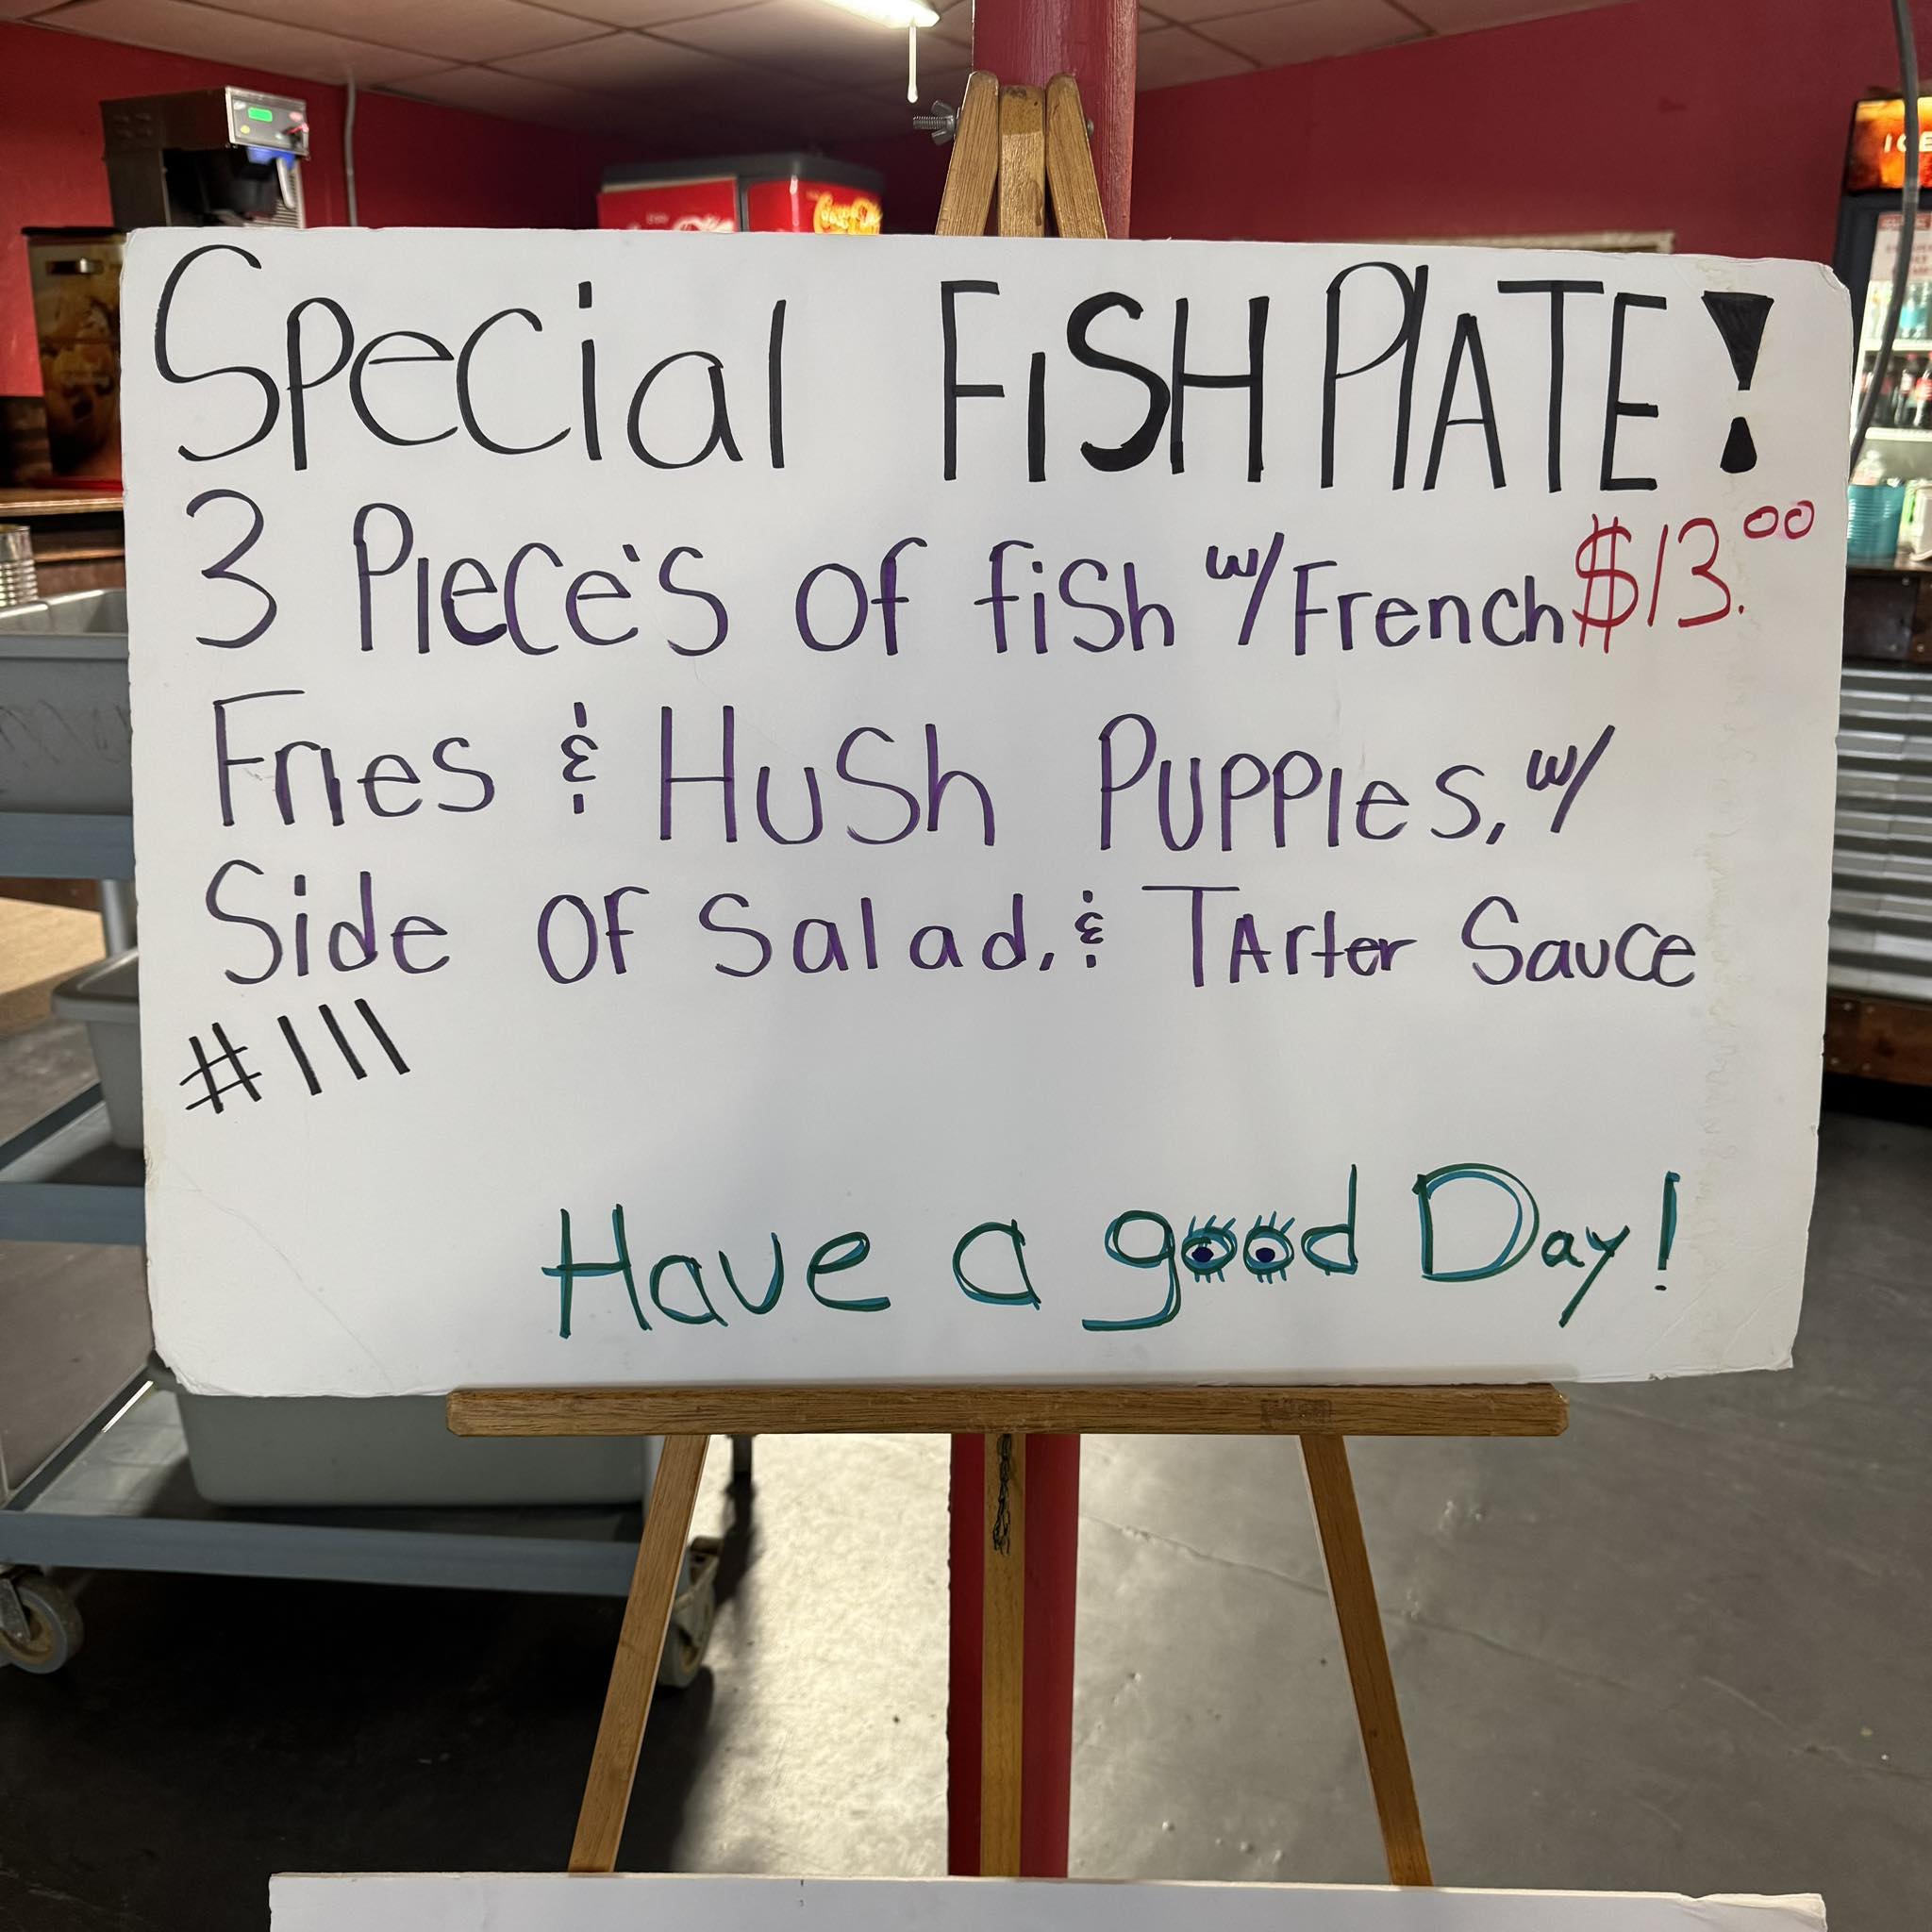 Special FiSH PlATE!
3 PIece's of fish w/French $13.00
Fries & Hush Puppies, w/
Side Of Salad, & TArter Sauce
#111
Have a good Day!
ICE